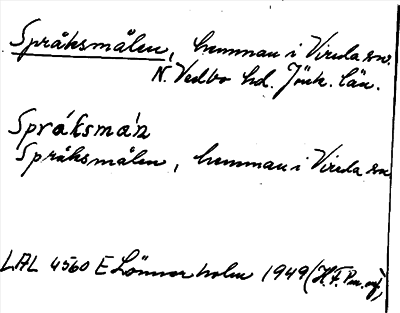 Språksmålen, hemman i Vireda sn.
N. Vedbo hd. Jönk. län.
Språksmån
Språksmålen, hemman i Vireda sn
LAL 4560 E Lönnerholm 1949 (H.F.